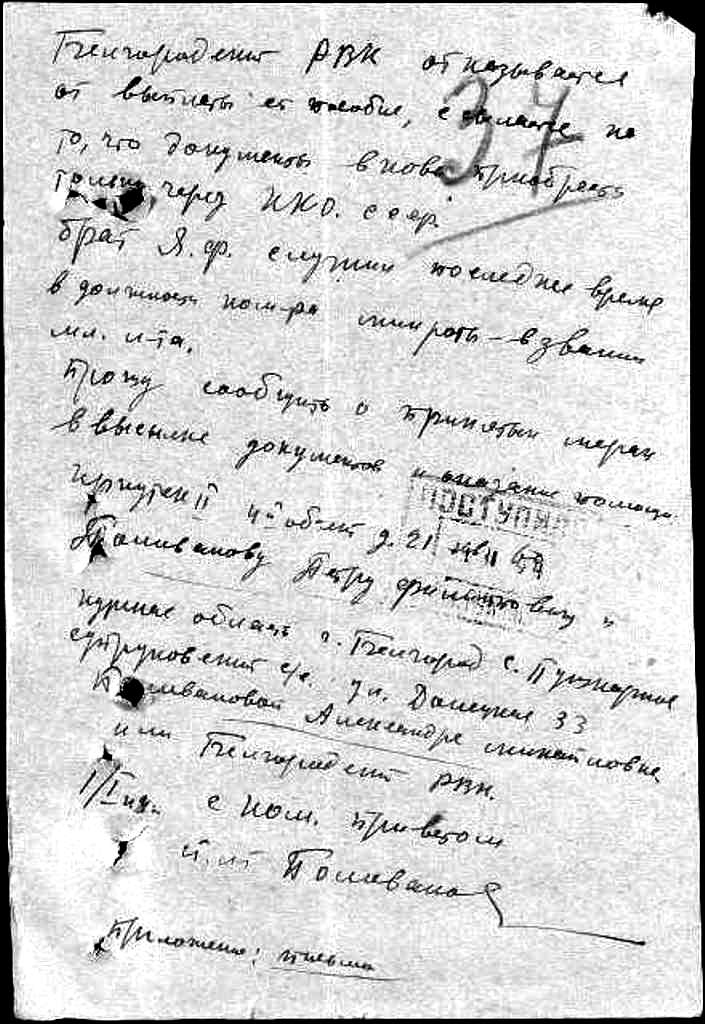 Белгородский РВК отказывается
от выплаты ей пособие, ссылаясь на
то, что документы вновь приобресть
только через НКО. ссср.
37
брат Я.Ф. служил последнее время
в должности ком-ра минроты – в звании
мл. л-та.
Прошу сообщить о принятых мерах
в высылке документов и оказание помощи.
Иркутск II 4й об-ект д. 21
ПОСТУПИЛО
Поливанову Петру Филипповичу и
Курская область г. Белгород с. Пушкарное
с/с. ул. Донецкая 33
Поливановой Александре Михайловне
или Белгородский РВК.
с ком. приветом
Поливанов
Приложение: письмо